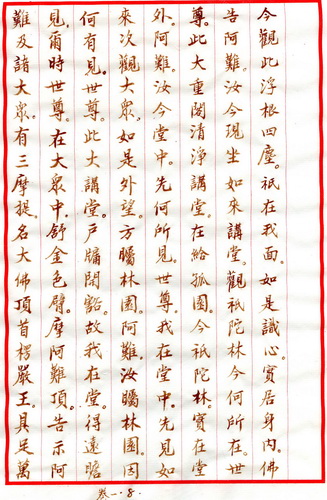 今觀此浮根四塵。祇在我面。如是識心。實居身內。佛
告阿難。汝今現坐如來講堂。觀祇陀林今何所在。世
尊。此大重閣清淨講堂。在給孤園。今祇陀林。實在堂
外。阿難。汝今堂中。先何所見。世尊。我在堂中。先見如
來。次觀大眾。如是外望。方矚林園。阿難。汝矚林園。因
何有見。世尊。此大講堂。戶牖開豁。故我在堂。得遠瞻
見。爾時世尊。在大眾中。舒金色臂。摩阿難頂。告示阿
難及諸大眾。有三摩提。名大佛頂首楞嚴王。具足萬
卷一.8.